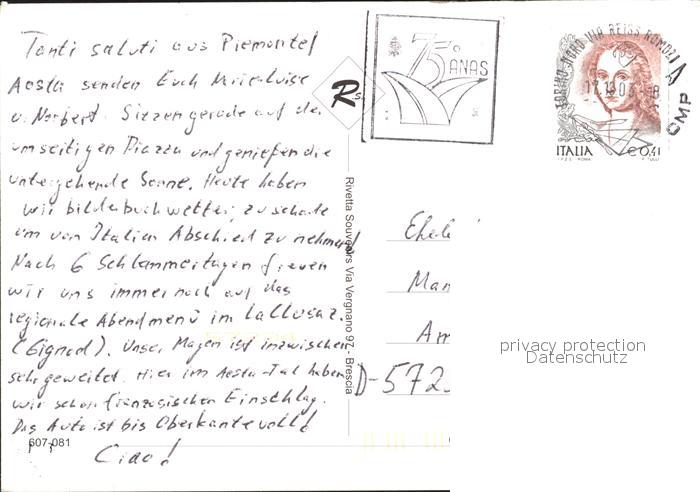 Tanti saluti aus Piemonte/
Aosta senden Euch Marieluise
u. Norbert. Sitzen gerade auf der
umseitigen Piazza und genießen die
untergehende Sonne. Heute haben
wir bilderbuchwetter, zu schade
um von Italien Abschied zu nehmen!
Nach 6 Schlemmertagen freuen
wir uns immer noch auf das
regionale Abendmenü im
(Gignod). Unser Magen ist inzwischen
sehr geweitet. Hier im Aosta-Tal haben
wir schon französischen Einschlag.
Das Auto ist bis Oberkante voll!
Ciao!
607-081
Rs
Rivetta Souvenirs Via Vergnano 97 - Brescia
75° ANAS
TORINO NORD VIA REISS ROMOLI
17.12.03
CMP
ITALIA € 0,41
I.P.Z.S. ROMA
Ehele
Man
Am
D-572
privacy protection
Datenschutz